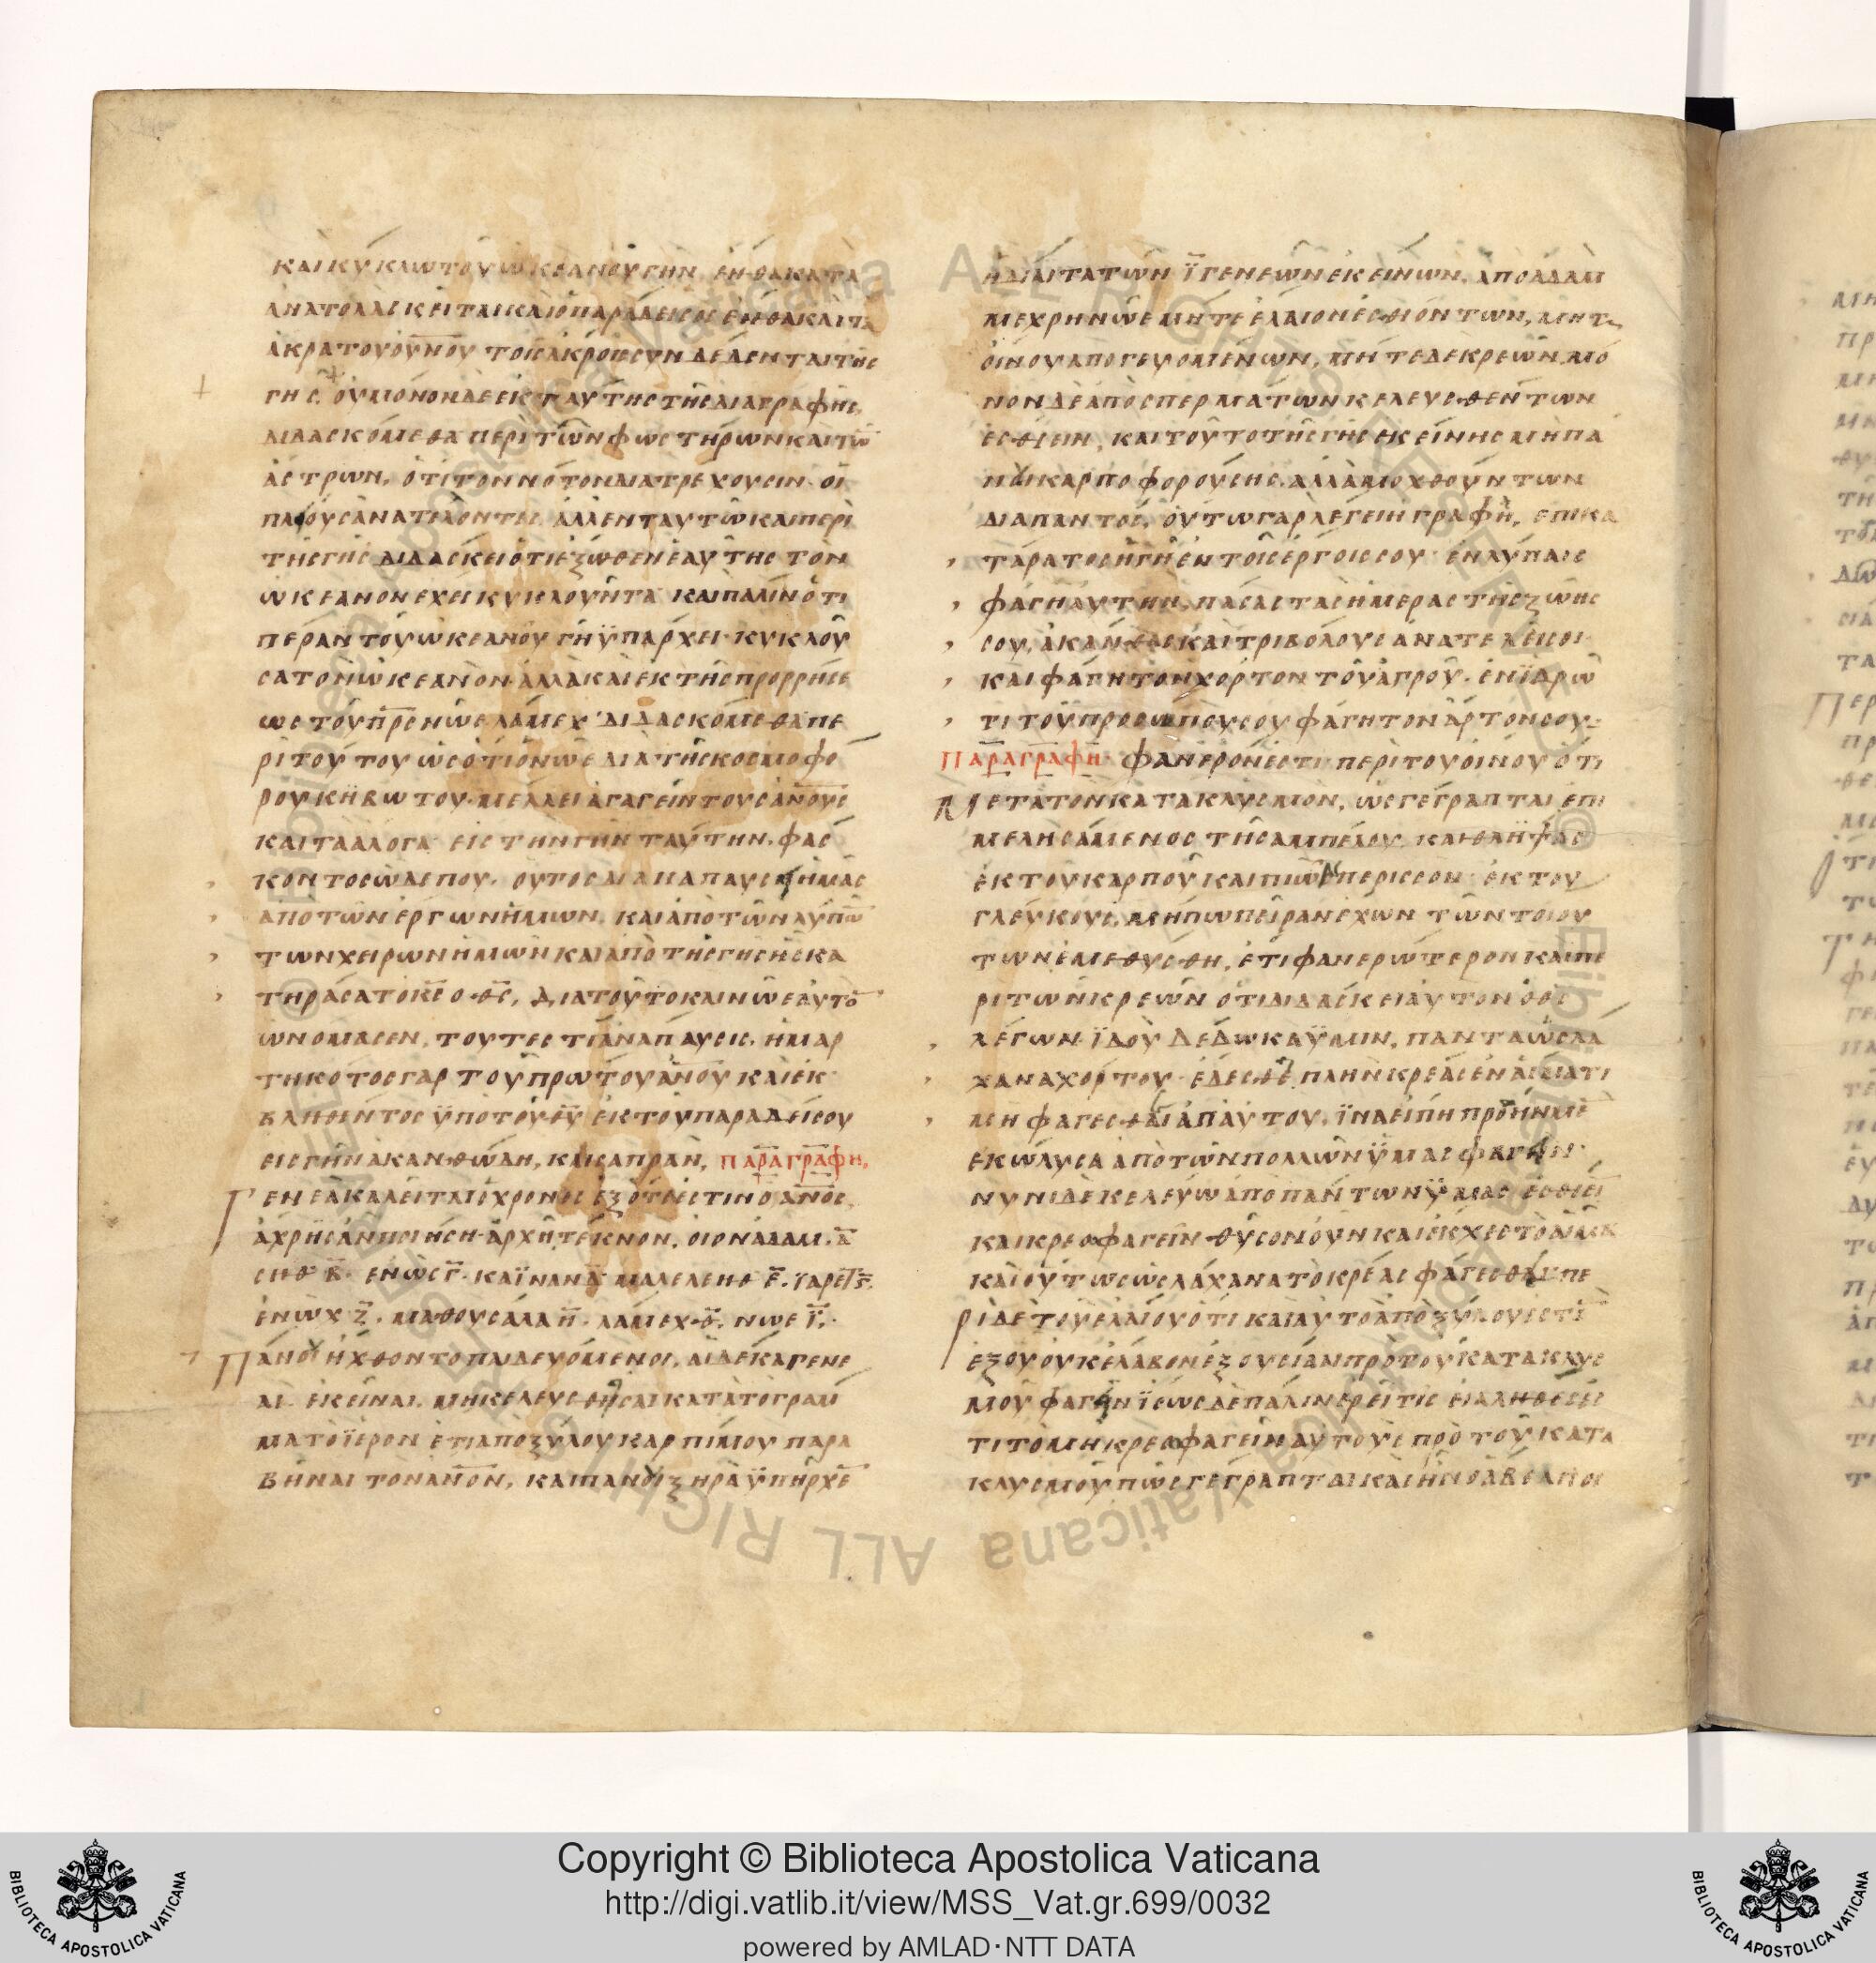 ΚΑΙ ΚΥΚΛΩ ΤΟΥ ΩΚΕΑΝΟΥ ΓΗΝ ΕΝΘΑ ΚΑΤΑ
ΑΝΑΤΟΛΑΣ ΚΕΙΤΑΙ ΚΑΙ Ο ΠΑΡΑΔΕΙΣΟΣ ΕΝΘΑ ΚΑΙ ΤΑ
ΑΚΡΑ ΤΟΥ ΟΥΝΟΥ ΤΟΙΣ ΑΚΡΟΙΣ ΣΥΝΔΕΔΕΝΤΑΙ ΤΗΣ
ΓΗΣ. ΟΥ ΜΟΝΟΝ ΔΕ ΕΚ ΤΑΥΤΗΣ ΤΗΣ ΔΙΑΓΡΑΦΗΣ
ΔΙΔΑΣΚΟΜΕΘΑ ΠΕΡΙ ΤΩΝ ΦΩΣΤΗΡΩΝ ΚΑΙ ΤΩ̄
ΑΣΤΡΩΝ, ΟΤΙ ΤΟΝ ΝΟΤΟΝ ΔΙΑΤΡΕΧΟΥΣΙΝ ΟΙ
ΠΛΙΟΥΣ ΑΝΑΤΕΛΟΝΤΕΣ ΑΛΛ ΕΝ ΤΑΥΤΩ ΚΑΙ ΠΕΡΙ
ΤΗΣ ΓΗΣ ΔΙΔΑΣΚΕΙ ΟΤΙ ΕΞΩΘΕΝ ΕΑΥΤΗΣ ΤΟΝ
ΩΚΕΑΝΟΝ ΕΧΕΙ ΚΥΚΛΟΥΝΤΑ ΚΑΙ ΠΑΛΙΝ ΟΤΙ
ΠΕΡΑΝ ΤΟΥ ΩΚΕΑΝΟΥ ΓΗ ΫΠΑΡΧΕΙ ΚΥΚΛΟΥ
ΣΑ ΤΟΝ ΩΚΕΑΝΟΝ ΑΛΛΑ ΚΑΙ ΕΚ ΤΗΣ ΠΡΟΡΡΗΣΕ
ΩΣ ΤΟΥ Π̄Ρ̄Σ̄ ΝΩΕ ΛΑΜΕΧ ΔΙΔΑΣΚΟΜΕΘΑ ΠΕ
ΡΙ ΤΟΥΤΟΥ ΩΣ ΟΤΙ Ο ΝΩΕ ΔΙΑ ΤΗΣ ΚΟΣΜΟΦΟ
ΡΟΥ ΚΗΒΩΤΟΥ ΜΕΛΛΕΙ ΑΓΑΓΕΙΝ ΤΟΥΣ ΑΝΟΥΣ
ΚΑΙ ΤΑ ΑΛΟΓΑ ΕΙΣ ΤΗΝ ΓΗΝ ΤΑΥΤΗΝ. ΦΑΣ
ΚΟΝΤΟΣ ΩΔΕ ΠΟΥ. ΟΥΤΟΣ ΔΙΑΝΑΠΑΥΣΕΙ ΗΜΑΣ
ΑΠΟ ΤΩΝ ΕΡΓΩΝ ΗΜΩΝ, ΚΑΙ ΑΠΟ ΤΩΝ ΛΥΠΩ̄
ΤΩΝ ΧΕΙΡΩΝ ΗΜΩΝ ΚΑΙ ΑΠΟ ΤΗΣ ΓΗΣ ΗΣ ΚΑ
ΤΗΡΑΣΑΤΟ Κ̄Σ̄ Ο Θ̄Σ̄, ΔΙΑ ΤΟΥΤΟ ΚΑΙ ΝΩΕ ΑΥΤΟ̄
ΩΝΟΜΑΣΕΝ, ΤΟΥΤΕΣΤΙ ΑΝΑΠΑΥΣΙΣ. ΗΜΑΡ
ΤΗΚΟΤΟΣ ΓΑΡ ΤΟΥ ΠΡΩΤΟΥ ΑΝΟΥ ΚΑΙ ΕΚ
ΒΛΗΘΕΝΤΟΣ ΫΠΟ ΤΟΥ Θ̄Ῡ ΕΚ ΤΟΥ ΠΑΡΑΔΕΙΣΟΥ
ΕΙΣ ΓΗΝ ΑΚΑΝΘΩΔΗ, ΚΑΙ ΣΑΠΡΑΝ, ΠΑΡΑΓΡΑΦΗ,
ΓΕΝΕΑ ΚΑΛΕΙΤΑΙ Ο ΧΡΟΝΟΣ ΕΞ ΟΤΟΥ ΕΣΤΙΝ Ο ΑΝΟΣ,
ΑΧΡΗΣ ΑΝ ΠΟΙΗΣΗ ΑΡΧΗ ΤΕΚΝΟΝ, ΟΙΟΝ ΑΔΑΜ. Ᾱ
ΣΗΘ Β̄. ΕΝΩΣ Γ̄. ΚΑΪΝΑΝ Δ̄ ΜΑΛΕΛΕΗΘ Ε̄. ΪΑΡΕΤ Ϛ̄.
ΕΝΩΧ Ζ̄. ΜΑΘΟΥΣΑΛΑ Η̄. ΛΑΜΕΧ Θ̄. ΝΩΕ Ῑ.
ΠΑΝΟΙ ΗΧΘΟΝΤΟ ΠΑΙΔΕΥΟΜΕΝΟΙ, ΑΙ ΔΕΚΑ ΓΕΝΕ
ΑΙ ΕΚΕΙΝΑΙ. ΜΗ ΚΕΛΕΥΣΘΗΣΑΙ ΚΑΤΑ ΤΟ ΓΡΑΜ
ΜΑ ΤΟ ΪΕΡΟΝ ΕΤΙ ΑΠΟ ΞΥΛΟΥ ΚΑΡΠΙΜΟΥ ΠΑΡΑ
ΒΗΝΑΙ ΤΟΝ ΑΝΟΝ, ΚΑΙ ΠΑΝΟΙ ΞΗΡΑ ΫΠΗΡΧΕ̄
Η ΔΙΑΙΤΑ ΤΩΝ Ῑ ΓΕΝΕΩΝ ΕΚΕΙΝΩΝ. ΑΠΟ ΑΔΑΜ
ΜΕΧΡΗ ΝΩΕ ΜΗΤΕ ΕΛΑΙΟΝ ΕΣΘΙΟΝΤΩΝ, ΜΗΤΕ
ΟΙΝΟΥ ΑΠΟΓΕΥΟΜΕΝΩΝ, ΜΗΤΕ ΔΕ ΚΡΕΩΝ ΜΟ
ΝΟΝ ΔΕ ΑΠΟ ΣΠΕΡΜΑΤΩΝ ΚΕΛΕΥΣΘΕΝΤΩΝ
ΕΣΘΙΕΙΝ, ΚΑΙ ΤΟΥΤΟ ΤΗΣ ΓΗΣ ΕΚΕΙΝΗΣ ΜΗ ΠΑ
ΝΟΙ ΚΑΡΠΟΦΟΡΟΥΣΗΣ. ΑΛΛΑ ΜΟΧΘΟΥΝΤΩΝ
ΔΙΑΠΑΝΤΟΣ, ΟΥΤΩ ΓΑΡ ΛΕΓΕΙ Η ΓΡΑΦΗ, ΕΠΙΚΑ
ΤΑΡΑΤΟΣ Η ΓΗ ΕΝ ΤΟΙΣ ΕΡΓΟΙΣ ΣΟΥ ΕΝ ΛΥΠΑΙΣ
ΦΑΓΗ ΑΥΤΗΝ, ΠΑΣΑΣ ΤΑΣ ΗΜΕΡΑΣ ΤΗΣ ΖΩΗΣ
ΣΟΥ, ΑΚΑΝΘΑΣ ΚΑΙ ΤΡΙΒΟΛΟΥΣ ΑΝΑΤΕΛΕΙ ΣΟΙ
ΚΑΙ ΦΑΓΗ ΤΟΝ ΧΟΡΤΟΝ ΤΟΥ ΑΓΡΟΥ. ΕΝ ΪΔΡΩ
ΤΙ ΤΟΥ ΠΡΟΣΩΠΟΥ ΣΟΥ ΦΑΓΗ ΤΟΝ ΑΡΤΟΝ ΣΟΥ
ΠΑΡΑΓΡΑΦΗ ΦΑΝΕΡΟΝ ΕΣΤΙ ΠΕΡΙ ΤΟΥ ΟΙΝΟΥ ΟΤΙ
ΜΕΤΑ ΤΟΝ ΚΑΤΑΚΛΥΣΜΟΝ, ΩΣ ΓΕΓΡΑΠΤΑΙ ΕΠΙ
ΜΕΛΗΣΑΜΕΝΟΣ ΤΗΣ ΑΜΠΕΛΟΥ, ΚΑΙ ΘΛΗΨΑΣ
ΕΚ ΤΟΥ ΚΑΡΠΟΥ ΚΑΙ ΠΙΩΝ ΠΕΡΙΣΣΟΝ ΕΚ ΤΟΥ
ΓΛΕΥΚΟΥΣ, ΜΗΠΩ ΠΕΙΡΑΝ ΕΧΩΝ ΤΩΝ ΤΟΙΟΥ
ΤΩΝ ΕΜΕΘΥΣΘΗ, ΕΤΙ ΦΑΝΕΡΩΤΕΡΟΝ ΚΑΙ ΠΕ
ΡΙ ΤΩΝ ΚΡΕΩΝ ΟΤΙ ΔΙΔΑΣΚΕΙ ΑΥΤΟΝ Ο Θ̄Σ̄
ΛΕΓΩΝ ΪΔΟΥ ΔΕΔΩΚΑ ΫΜΙΝ, ΠΑΝΤΑ ΩΣ ΛΑ
ΧΑΝΑ ΧΟΡΤΟΥ ΕΔΕΣΘΕ ΠΛΗΝ ΚΡΕΑΣ ΕΝ ΑΙΜΑΤΙ
ΜΗ ΦΑΓΕΣΘΑΙ ΑΠ ΑΥΤΟΥ, ΪΝΑ ΕΙΠΗ ΠΡΟΗΝ ΜΕ
ΕΚΩΛΥΣΑ ΑΠΟ ΤΩΝ ΠΟΛΛΩΝ ΫΜΑΣ ΦΑΓΕΙΝ
ΝΥΝΙ ΔΕ ΚΕΛΕΥΩ ΑΠΟ ΠΑΝΤΩΝ ΫΜΑΣ ΕΣΘΙΕῙ
ΚΑΙ ΚΡΕΟΦΑΓΕΙΝ ΘΥΣΟΝ ΟΥΝ ΚΑΙ ΕΚΧΕΣ ΤΟ ΑΙΜΑ
ΚΑΙ ΟΥΤΩΣ ΩΣ ΛΑΧΑΝΑ ΤΟ ΚΡΕΑΣ ΦΑΓΕΣΘΑΙ ΠΕ
ΡΙ ΔΕ ΤΟΥ ΕΛΑΙΟΥ ΟΤΙ ΚΑΙ ΑΥΤΟ ΑΠΟ ΞΥΛΟΥ ΕΣΤῙ
ΕΞ ΟΥ ΟΥΚ ΕΛΑΒΟΝ ΕΞΟΥΣΙΑΝ ΠΡΟ ΤΟΥ ΚΑΤΑΚΛΥΣ
ΜΟΥ ΦΑΓΕΙΝ ΪΣΩΣ ΔΕ ΠΑΛΙΝ ΕΡΕΙ ΤΙΣ ΕΙ ΑΛΗΘΕΣ ΕΣ
ΤΙ ΤΟ ΜΗ ΚΡΕΟΦΑΓΕΙΝ ΑΥΤΟΥΣ ΠΡΟ ΤΟΥ ΚΑΤΑ
ΚΛΥΣΜΟΥ ΠΩΣ ΓΕΓΡΑΠΤΑΙ ΚΑΙ ΗΝ Ο ΑΒΕΛ ΠΟΙ
ALL RIGHTS RESERVED
© Biblioteca Apostolica Vaticana
Copyright © Biblioteca Apostolica Vaticana
http://digi.vatlib.it/view/MSS_Vat.gr.699/0032
powered by AMLAD·NTT DATA
BIBLIOTECA APOSTOLICA VATICANA
BIBLIOTECA APOSTOLICA VATICANA